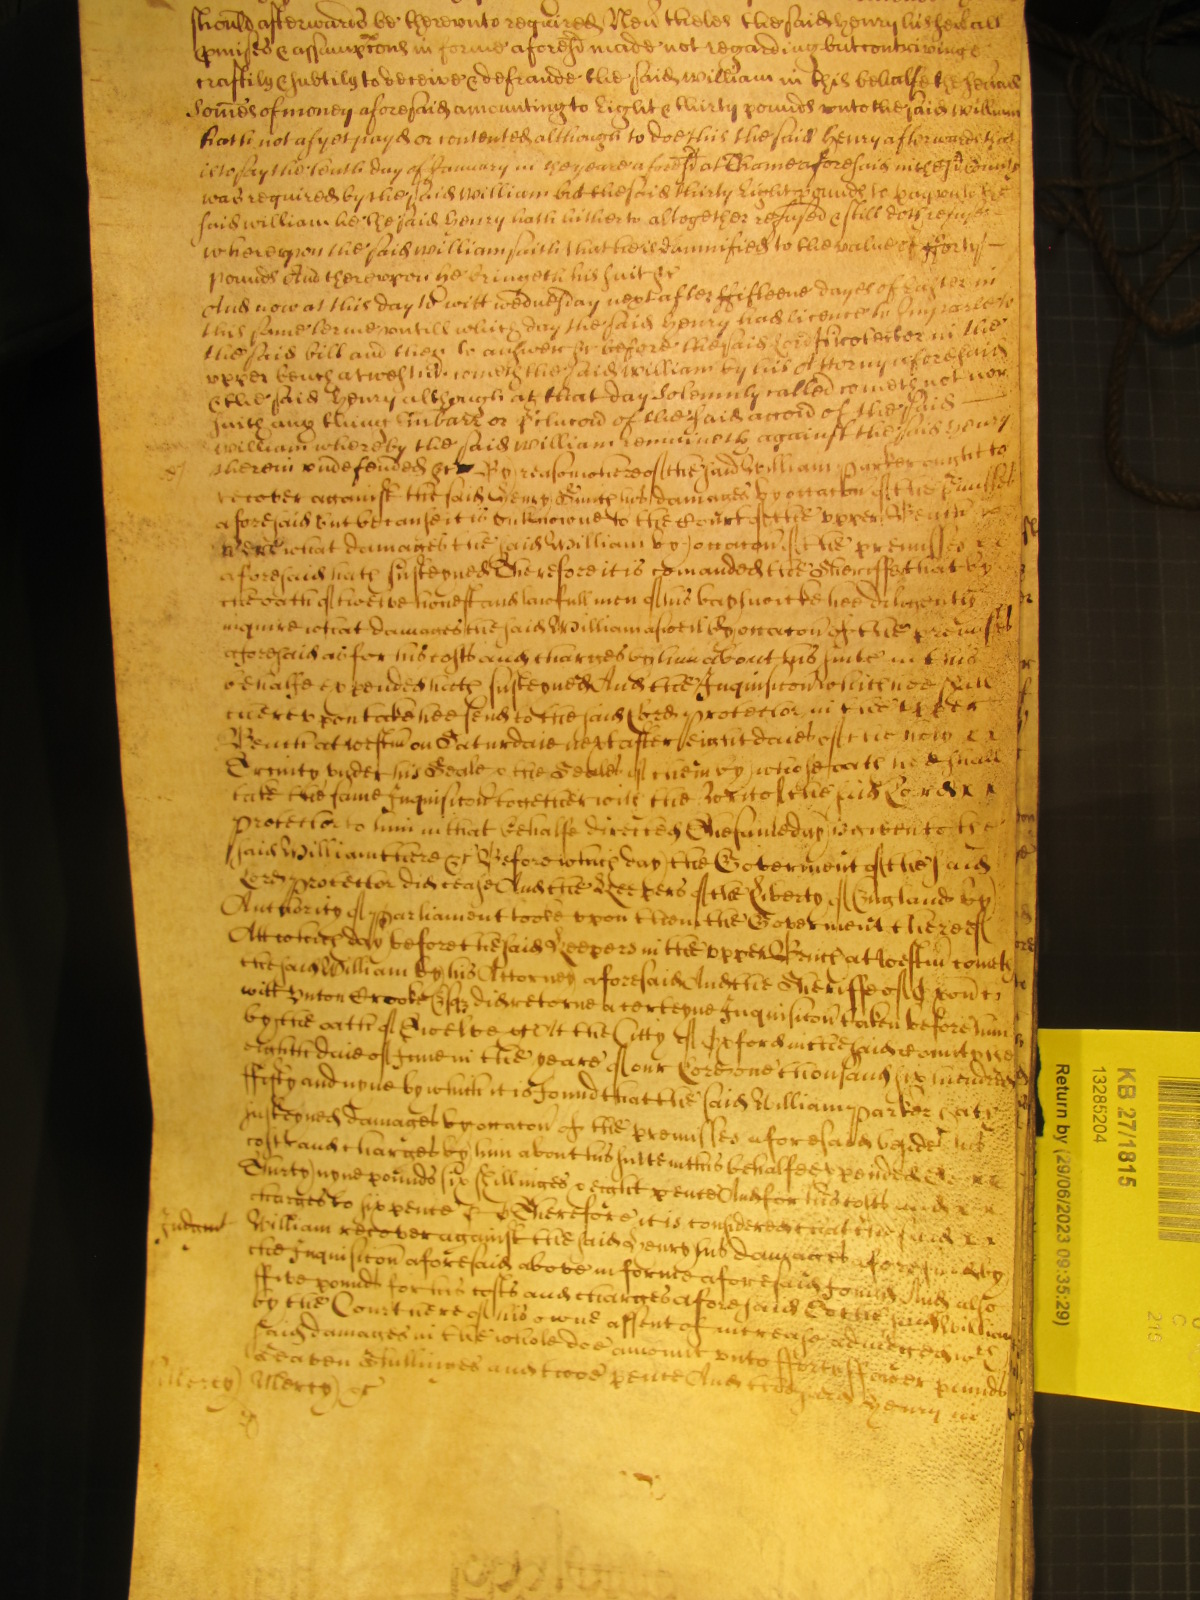 should afterwards be thereunto required Nevertheles the said Henry his sevall
pmises & assumpcons in forme aforesd made not regarding but contriving &
craftily & subtily to deceive & defraude the said William in this behalfe the severall
Somes of money aforesaid amounting to Eight & thirty pounds unto the said William
hath not as yet payd or contented although to doe this the said Henry afterwards that
is to say the tenth day of January in the yeare aforesd at Thame aforesaid in the sd County
was required by the said William but the said thirty Eight pounds to pay unto the
said William he the said Henry hath hitherto altogether refused & still doth refuse
whereupon the said William saith that he is damnified to the value of fforty
pounds And thereupon he bringeth his suit &c
And now at this day to witt wednesday next after ffifteene dayes of Easter in
this same terme untill which day the said Henry had licence to Imparle to
the said bill and then to answer &c before the said Lord Protector in the
upper bench at westm cometh the said William by his Attorny aforesaid
& the said Henry although at that day solemnly called cometh not nor
saith any thing in barr or p'clucon of the said accon of the said
William whereby the said William remaineth against the said Henry
therein undefended &c By reason whereof the said William Parker ought to
recover against the said Henry Smith his damages by occacon of the pmisses
aforesaid But because it is unknowne to the Court of the upper Bench
here what damages the said William by occacon of the premisses
aforesaid hath susteyned Therefore it is comanded the Sheriffe that by
the oath of twelve honest and lawfull men of his baylywicke hee diligently
inquire what damages the said William aswell by occacon of the premisses
aforesaid as for his costs and charges by him about his suite in this
behalfe expended hath susteyned And the Inquisicon which hee shall
thereupon take hee send to the said Lord Protector in the upper
Bench at westm on Saturdaie next after eight daies of the holy
Trinity under his Seale & the Seales of them by whose oath hee shall
take the same Inquisicon together with the Writ of the said Lord
Protector to him in that behalfe directed The same day is given to the
said William there &c Before which day the Goverment of the said
Lord Protector did cease And the Keepers of the Liberty of England by
Authority of Parliament tooke upon them the Goverment thereof
Att which day before the said Keepers in the upper Bench at westm cometh
the said William by his Attorney aforesaid And the Sheriffe of Oxon to
witt Unton Crooke Esqr did retorne a certeyne Inquisicon taken before him
by the oath of Twelve &c Att the Citty of Oxford in the said county the
eighth daie of June in the yeare of our Lord one thousand six hundred
ffifty and nyne by which it is found that the said William Parker hath
susteyned damages by occacon of the premisses aforesaid beside his
costs and charges by him about his suite in this behalfe expended to
Thirty nyne pounds six shillinges & eight pence And for his costs and
charges to six pence Therefore it is considered that the said
Judgmt William recover against the said Henry his damages aforesaid by
the Inquisicon aforesaid above in forme aforesaid found And also
ffive pounds for his costs and charges aforesaid to the said William
by the Court here of his owne assent of increase adiudged wch
said damages in the whole doe amount unto fforty ffower pounds
Seaven Shillinges and twoe pence And the said Henry in
Mercy) Mercy) &c
KB 27/1815
13285204
Return by (29/06/2023 09:35:29)